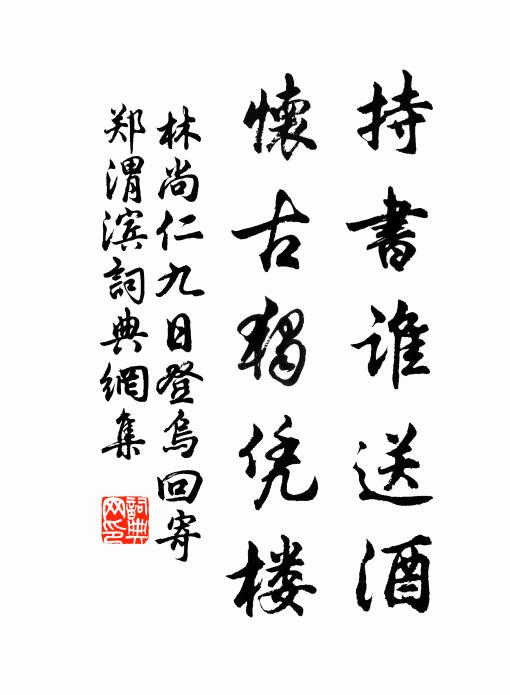 持書誰送酒
懷古獨凭楼
林尚仁九日登烏回寄
郑渭滨詞典網集
詞典